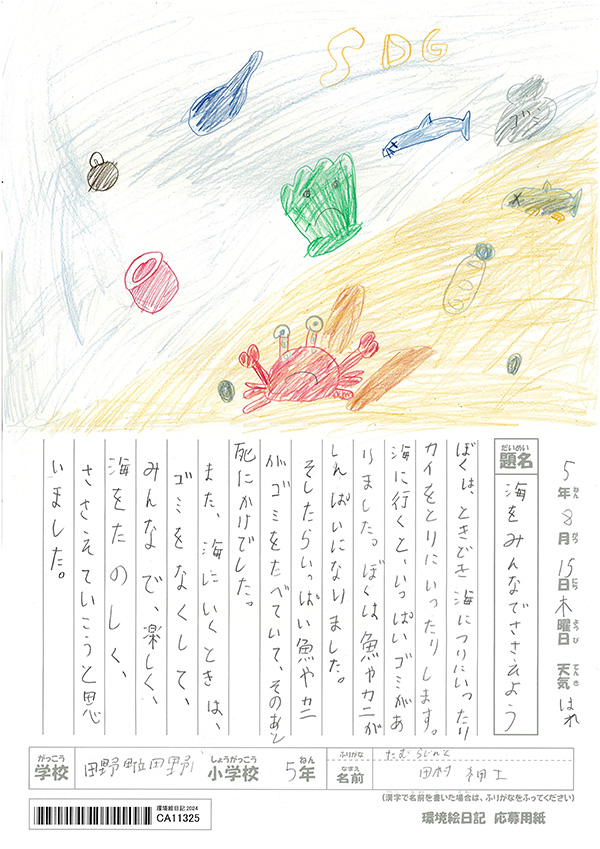 SDG
ゴミ
5年8月15日木曜日 天気 はれ
ねん がつ にち ようび てんき
だいめい
題名
海をみんなでささえよう
ぼくは、ときどき海につりにいったり
カイをとりにいったりします。
海に行くと、いっぱいゴミがあ
りました。ぼくは魚やカニが
しんぱいになりました。
そしたらいっぱい魚やカニ
がゴミをたべていて、そのあと
死にかけでした。
また、海にいくときは、
ゴミをなくして、
みんなで、楽しく、
海をたのしく、
ささえていこうと思
いました。
がっこう しょうがっこう ねん ふりがな
学校 田野町立田野 小学校 5年
なまえ
名前 田村 紳士
たむらじぇんと
(漢字で名前を書いた場合は、ふりがなをふってください)
環境絵日記2024
CA11325
環境絵日記 応募用紙